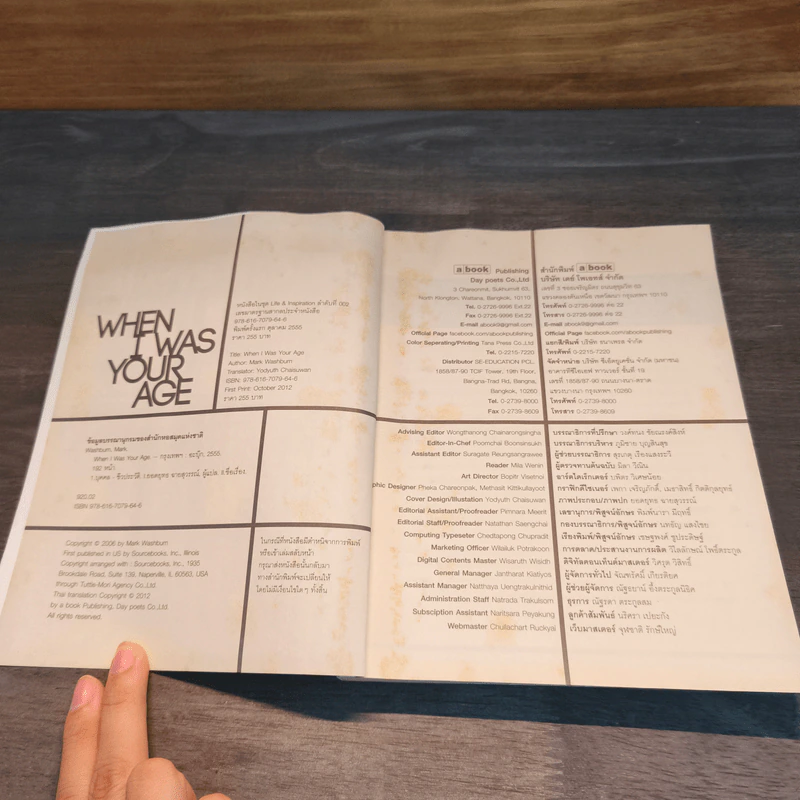 WHEN
I WAS
YOUR
AGE
หนังสือในชุด Life & Inspiration ลำดับที่ (93)
เลขมาตรฐานสากลประจำหนังสือ
978-616-7079-64-6
พิมพ์ครั้งแรก ตุลาคม 2555
ราคา 255 บาท
Title: When I Was Your Age
Author: Mark Washburn
Translator: Yodyuth Chaisuwan
ISBN: 978-616-7079-64-6
First Print: October 2012
ราคา 255 บาท
ข้อมูลบรรณานุกรมของสำนักหอสมุดแห่งชาติ
Washburn, Mark.
When I Was Your Age. -- กรุงเทพฯ : อะบุ๊ก, 2555.
192 หน้า.
1.บุคคล - ชีวประวัติ. I.ยอดยุทธ ฉายสุวรรณ์, ผู้แปล. II.ชื่อเรื่อง.
920.02
ISBN 978-616-7079-64-6
Copyright © 2006 by Mark Washburn
First published in US by Sourcebooks, Inc., Illinois
Copyright arranged with : Sourcebooks, Inc., 1935
Brookdale Road, Suite 139, Naperville, IL 60563, USA
through Tuttle-Mori Agency Co., Ltd.
Thai translation Copyright © 2012
by a book Publishing, Day poets Co.,Ltd.
All rights reserved.
ในกรณีที่หนังสือมีตำหนิจากการพิมพ์
หรือเข้าเล่มสลับหน้า
กรุณาส่งหนังสือนั้นกลับมา
ทางสำนักพิมพ์จะเปลี่ยนให้
โดยไม่มีเงื่อนไขใดๆ ทั้งสิ้น
a book Publishing
Day poets Co.,Ltd
3 Charoenmit, Sukhumvit 63,
North Klongton, Wattana, Bangkok, 10110
Tel. 0-2726-9996 Ext.22
Fax 0-2726-9996 Ext.22
E-mail abook9@gmail.com
Official Page facebook.com/abookpublishing
Color Seperating/Printing Tana Press Co.,Ltd
Tel. 0-2215-7220
Distributor SE-EDUCATION PCL.,
1858/87-90 TCIF Tower, 19th Floor,
Bangna-Trad Rd, Bangna,
Bangkok, 10260
Tel. 0-2739-8000
Fax 0-2739-8609
สำนักพิมพ์ a book
บริษัท เดย์ โพเอทส์ จำกัด
เลขที่ 3 ซอยเจริญมิตร ถนนสุขุมวิท 63
แขวงคลองตันเหนือ เขตวัฒนา กรุงเทพฯ 10110
โทรศัพท์ 0-2726-9996 ต่อ 22
โทรสาร 0-2726-9996 ต่อ 22
E-mail abook9@gmail.com
Official Page facebook.com/abookpublishing
แยกสี/พิมพ์ บริษัท ธนาเพรส จำกัด
โทรศัพท์ 0-2215-7220
จัดจำหน่าย บริษัท ซีเอ็ดยูเคชั่น จำกัด (มหาชน)
อาคารทีซีไอเอฟ ทาวเวอร์ ชั้นที่ 19
เลขที่ 1858/87-90 ถนนบางนา-ตราด
แขวงบางนา เขตบางนา กรุงเทพฯ 10260
โทรศัพท์ 0-2739-8000
โทรสาร 0-2739-8609
Advising Editor Wongthanong Chainarongsingha
Editor-in-Chef Poomchai Boonsinsukh
Assistant Editor Suragate Reungsangrawee
Reader Mila Wenin
Art Director Bopitr Visetnoi
phic Designer Pheka Chareonpak, Methasit Kittikullayoot
Cover Design/Illustation Yodyuth Chaisuwan
Editorial Assistant/Proofreader Pimnara Meerit
Editorial Staff/Proofreader Natathan Saengchai
Computing Typeseter Chedtapong Chupradit
Marketing Officer Wilailuk Potrakoon
Digital Contents Master Wisaruth Wisidh
General Manager Jantharat Kiatiyos
Assistant Manager Natthaya Uengtrakulnithid
Administration Staff Natrada Trakulsom
Subsciption Assistant Naritsara Peyakung
Webmaster Chullachart Ruckyai
บรรณาธิการที่ปรึกษา วงศ์ทนง ชัยณรงค์สิงห์
บรรณาธิการบริหาร ภูมิชาย บุญสินสุข
ผู้ช่วยบรรณาธิการ สุรเกตุ เรืองแสงระวี
ผู้ตรวจทานต้นฉบับ มิลา วีณิน
อาร์ตไดเร็กเตอร์ บพิตร วิเศษน้อย
กราฟิกดีไซเนอร์ เพกา เจริญภักดิ์, เมธาสิทธิ์ กิตติกุลยุทธ์
ภาพประกอบ/ภาพปก ยอดยุทธ ฉายสุวรรณ์
เลขานุการ/พิสูจน์อักษร พิมพ์นารา มีฤทธิ์
กองบรรณาธิการ/พิสูจน์อักษร นทธัญ แสงไชย
เรียงพิมพ์/พิสูจน์อักษร เชษฐพงศ์ ชูประดิษฐ์
การตลาด/ประสานงานการผลิต วิไลลักษณ์ โพธิ์ตระกูล
ดิจิทัลคอนเท็นต์มาสเตอร์ วิศรุต วิสิทธิ์
ผู้จัดการทั่วไป จันทรัศมิ์ เกียรติยศ
ผู้ช่วยผู้จัดการ ณัฐยาน์ อึ้งตระกูลนิธิศ
ธุรการ ณัฐรดา ตระกูลสม
ลูกค้าสัมพันธ์ นริศรา เปยะกัง
เว็บมาสเตอร์ จุฬชาติ รักษ์ใหญ่